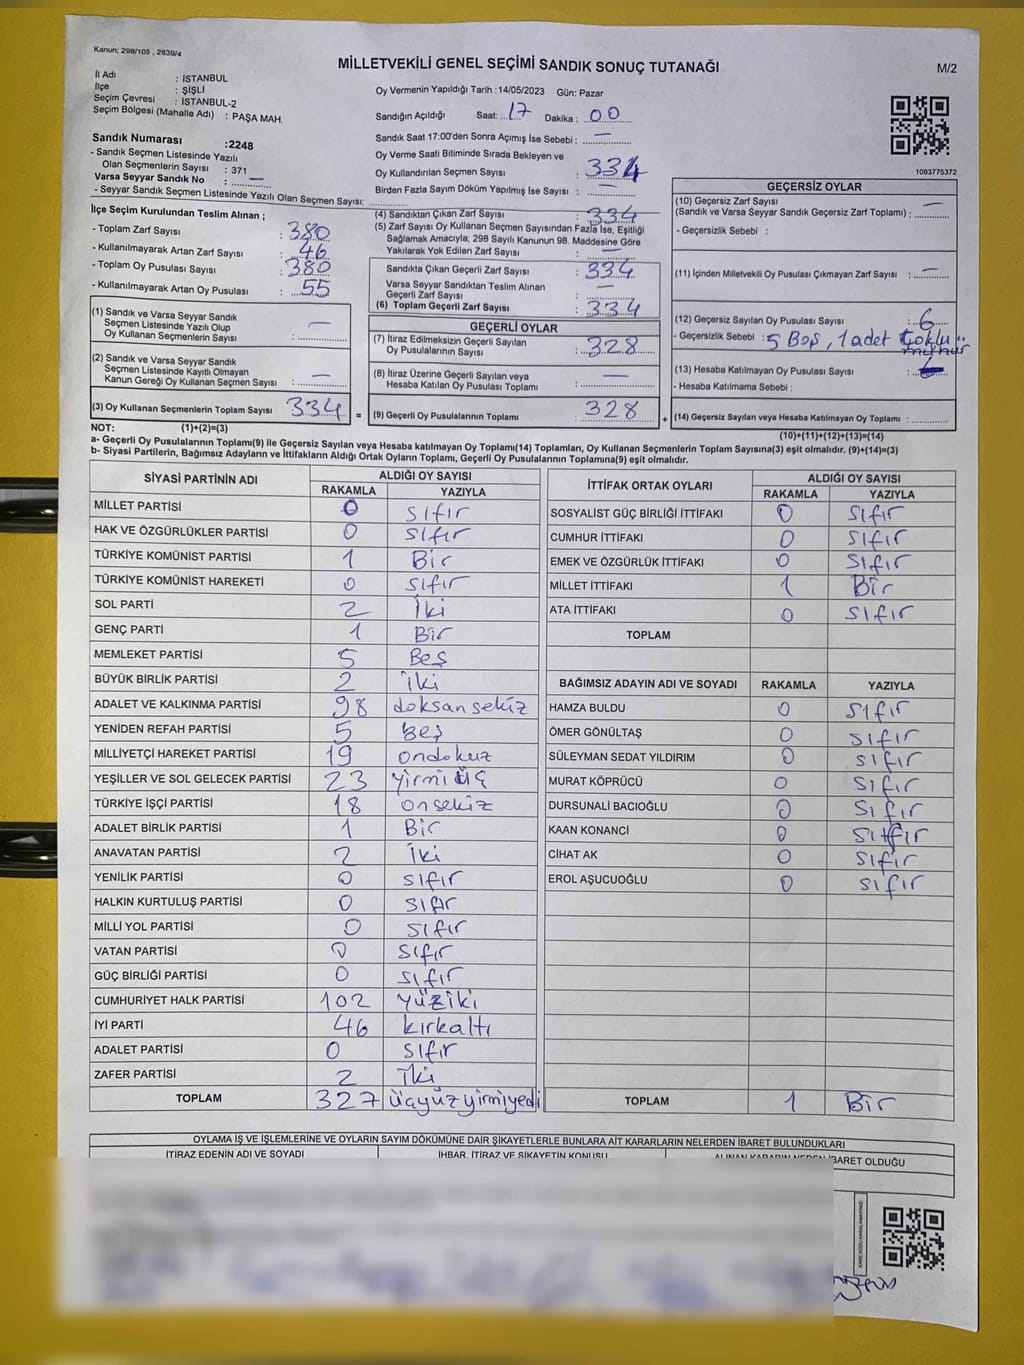 Kanun; 298/105 , 2839/4
MİLLETVEKİLİ GENEL SEÇİMİ SANDIK SONUÇ TUTANAĞI
M/2
İl Adı : İSTANBUL
İlçe : ŞİŞLİ
Seçim Çevresi : İSTANBUL-2
Seçim Bölgesi (Mahalle Adı) : PAŞA MAH.
Oy Vermenin Yapıldığı Tarih : 14/05/2023 Gün: Pazar
Sandığın Açıldığı Saat: 17 Dakika : 00
Sandık Saat 17:00'den Sonra Açımış İse Sebebi : —
Oy Verme Saati Bitiminde Sırada Bekleyen ve
Oy Kullandırılan Seçmen Sayısı : 334
Birden Fazla Sayım Döküm Yapılmış İse Sayısı : —
1083775372
Sandık Numarası :2248
- Sandık Seçmen Listesinde Yazılı
Olan Seçmenlerin Sayısı : 371
Varsa Seyyar Sandık No : —
- Seyyar Sandık Seçmen Listesinde Yazılı Olan Seçmen Sayısı:
İlçe Seçim Kurulundan Teslim Alınan ;
- Toplam Zarf Sayısı : 380
- Kullanılmayarak Artan Zarf Sayısı : 46
- Toplam Oy Pusulası Sayısı : 380
- Kullanılmayarak Artan Oy Pusulası : 55
(1) Sandık ve Varsa Seyyar Sandık
Seçmen Listesinde Yazılı Olup
Oy Kullanan Seçmenlerin Sayısı : —
(2) Sandık ve Varsa Seyyar Sandık
Seçmen Listesinde Kayıtlı Olmayan
Kanun Gereği Oy Kullanan Seçmen Sayısı : —
(3) Oy Kullanan Seçmenlerin Toplam Sayısı 334 =
(4) Sandıktan Çıkan Zarf Sayısı : 334
(5) Zarf Sayısı Oy Kullanan Seçmen Sayısından Fazla İse, Eşitliği
Sağlamak Amacıyla; 298 Sayılı Kanunun 98. Maddesine Göre
Yakılarak Yok Edilen Zarf Sayısı : —
Sandıkta Çıkan Geçerli Zarf Sayısı : 334
Varsa Seyyar Sandıktan Teslim Alınan
Geçerli Zarf Sayısı : —
(6) Toplam Geçerli Zarf Sayısı : 334
GEÇERLİ OYLAR
(7) İtiraz Edilmeksizin Geçerli Sayılan
Oy Pusulalarının Sayısı : 328
(8) İtiraz Üzerine Geçerli Sayılan veya
Hesaba Katılan Oy Pusulası Toplamı : —
(9) Geçerli Oy Pusulalarının Toplamı : 328 +
GEÇERSİZ OYLAR
(10) Geçersiz Zarf Sayısı —
(Sandık ve Varsa Seyyar Sandık Geçersiz Zarf Toplamı) :
- Geçersizlik Sebebi :
(11) İçinden Milletvekili Oy Pusulası Çıkmayan Zarf Sayısı : —
(12) Geçersiz Sayılan Oy Pusulası Sayısı : 6
- Geçersizlik Sebebi : 5 Boş, 1 adet Çoklu
mühür
(13) Hesaba Katılmayan Oy Pusulası Sayısı :
- Hesaba Katılmama Sebebi :
(14) Geçersiz Sayılan veya Hesaba Katılmayan Oy Toplamı :
NOT: (1)+(2)=(3)
(10)+(11)+(12)+(13)=(14)
a- Geçerli Oy Pusulalarının Toplamı(9) ile Geçersiz Sayılan veya Hesaba katılmayan Oy Toplamı(14) Toplamları, Oy Kullanan Seçmenlerin Toplam Sayısına(3) eşit olmalıdır. (9)+(14)=(3)
b- Siyasi Partilerin, Bağımsız Adayların ve İttifakların Aldığı Ortak Oyların Toplamı, Geçerli Oy Pusulalarının Toplamına(9) eşit olmalıdır.
SİYASİ PARTİNİN ADI ALDIĞI OY SAYISI
RAKAMLA YAZIYLA
MİLLET PARTİSİ 0 sıfır
HAK VE ÖZGÜRLÜKLER PARTİSİ 0 sıfır
TÜRKİYE KOMÜNİST PARTİSİ 1 Bir
TÜRKİYE KOMÜNİST HAREKETİ 0 sıfır
SOL PARTİ 2 İki
GENÇ PARTİ 1 Bir
MEMLEKET PARTİSİ 5 Beş
BÜYÜK BİRLİK PARTİSİ 2 İki
ADALET VE KALKINMA PARTİSİ 98 doksan sekiz
YENİDEN REFAH PARTİSİ 5 Beş
MİLLİYETÇİ HAREKET PARTİSİ 19 ondokuz
YEŞİLLER VE SOL GELECEK PARTİSİ 23 yirmi üç
TÜRKİYE İŞÇİ PARTİSİ 18 onsekiz
ADALET BİRLİK PARTİSİ 1 Bir
ANAVATAN PARTİSİ 2 İki
YENİLİK PARTİSİ 0 sıfır
HALKIN KURTULUŞ PARTİSİ 0 sıfır
MİLLİ YOL PARTİSİ 0 sıfır
VATAN PARTİSİ 0 sıfır
GÜÇ BİRLİĞİ PARTİSİ 0 sıfır
CUMHURİYET HALK PARTİSİ 102 yüziki
İYİ PARTİ 46 kırkaltı
ADALET PARTİSİ 0 sıfır
ZAFER PARTİSİ 2 İki
TOPLAM 327 üçyüzyirmiyedi
İTTİFAK ORTAK OYLARI ALDIĞI OY SAYISI
RAKAMLA YAZIYLA
SOSYALİST GÜÇ BİRLİĞİ İTTİFAKI 0 sıfır
CUMHUR İTTİFAKI 0 sıfır
EMEK VE ÖZGÜRLÜK İTTİFAKI 0 sıfır
MİLLET İTTİFAKI 1 Bir
ATA İTTİFAKI 0 sıfır
TOPLAM
BAĞIMSIZ ADAYIN ADI VE SOYADI RAKAMLA YAZIYLA
HAMZA BULDU 0 sıfır
ÖMER GÖNÜLTAŞ 0 sıfır
SÜLEYMAN SEDAT YILDIRIM 0 sıfır
MURAT KÖPRÜCÜ 0 sıfır
DURSUNALİ BACIOĞLU 0 sıfır
KAAN KONANCİ 0 sıfır
CİHAT AK 0 sıfır
EROL AŞUCUOĞLU 0 sıfır
TOPLAM 1 Bir
OYLAMA İŞ VE İŞLEMLERİNE VE OYLARIN SAYIM DÖKÜMÜNE DAİR ŞİKAYETLERLE BUNLARA AİT KARARLARIN NELERDEN İBARET BULUNDUKLARI
İTİRAZ EDENİN ADI VE SOYADI İHBAR, İTİRAZ VE ŞİKAYETİN KONUSU ALINAN KARARIN NEDEN İBARET OLDUĞU